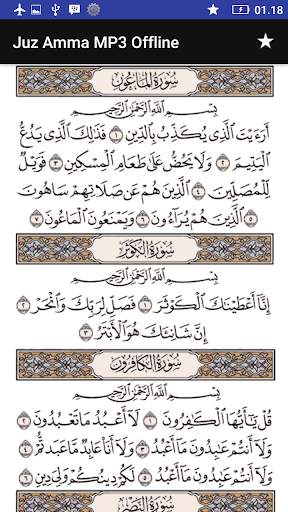 01.18
Juz Amma MP3 Offline
سُورَةُ المَاعُونِ
بِسْمِ اللَّهِ الرَّحْمَٰنِ الرَّحِيمِ
أَرَءَيْتَ الَّذِي يُكَذِّبُ بِالدِّينِ ١ فَذَٰلِكَ الَّذِي يَدُعُّ
الْيَتِيمَ ٢ وَلَا يَحُضُّ عَلَىٰ طَعَامِ الْمِسْكِينِ ٣ فَوَيْلٌ
لِّلْمُصَلِّينَ ٤ الَّذِينَ هُمْ عَن صَلَاتِهِمْ سَاهُونَ ٥
الَّذِينَ هُمْ يُرَاءُونَ ٦ وَيَمْنَعُونَ الْمَاعُونَ ٧
سُورَةُ الكَوْثَرِ
بِسْمِ اللَّهِ الرَّحْمَٰنِ الرَّحِيمِ
إِنَّا أَعْطَيْنَاكَ الْكَوْثَرَ ١ فَصَلِّ لِرَبِّكَ وَانْحَرْ ٢
إِنَّ شَانِئَكَ هُوَ الْأَبْتَرُ ٣
سُورَةُ الكَافِرُونَ
بِسْمِ اللَّهِ الرَّحْمَٰنِ الرَّحِيمِ
قُلْ يَا أَيُّهَا الْكَافِرُونَ ١ لَا أَعْبُدُ مَا تَعْبُدُونَ ٢
وَلَا أَنتُمْ عَابِدُونَ مَا أَعْبُدُ ٣ وَلَا أَنَا عَابِدٌ مَّا عَبَدتُّمْ ٤
وَلَا أَنتُمْ عَابِدُونَ مَا أَعْبُدُ ٥ لَكُمْ دِينُكُمْ وَلِيَ دِينِ ٦
سُورَةُ النَّصْرِ